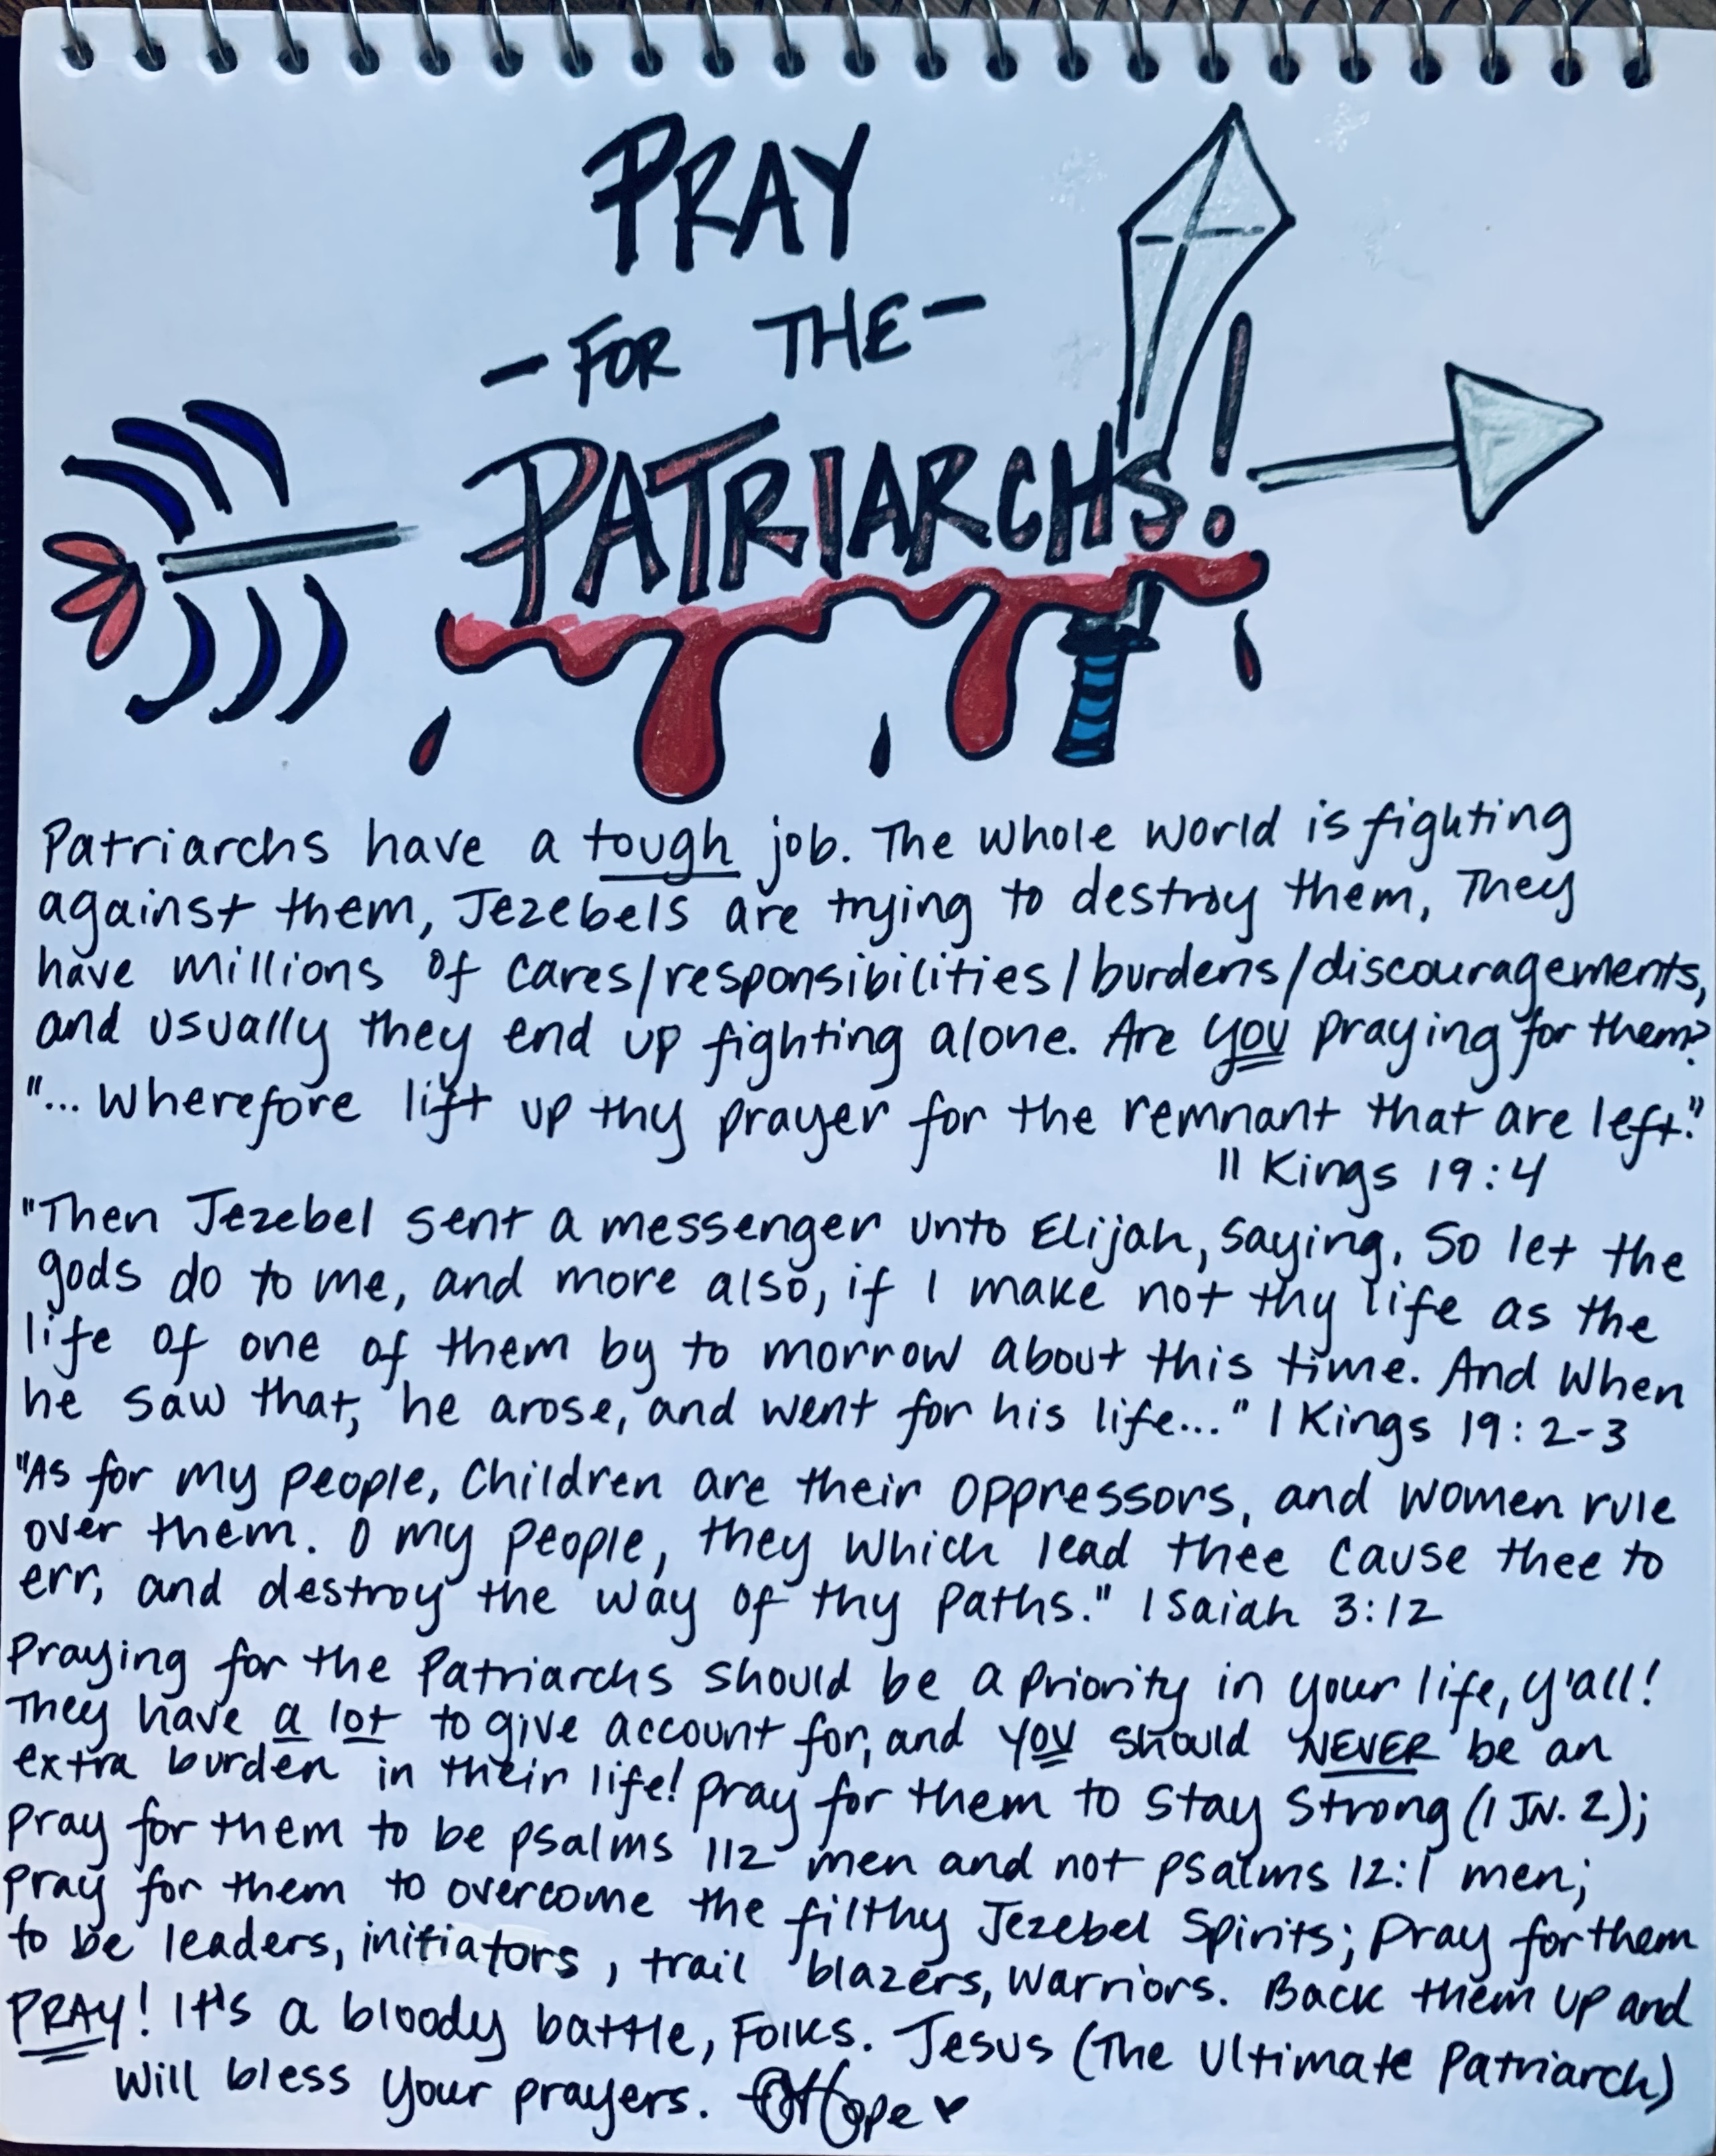 PRAY
- FOR THE -
PATRIARCHS!
Patriarchs have a tough job. The whole world is fighting
against them, Jezebels are trying to destroy them, They
have millions of cares/responsibilities/burdens/discouragements,
and usually they end up fighting alone. Are you praying for them?
"... Wherefore lift up thy prayer for the remnant that are left."
II Kings 19:4
"Then Jezebel sent a messenger unto Elijah, saying, So let the
gods do to me, and more also, if I make not thy life as the
life of one of them by to morrow about this time. And when
he saw that, he arose, and went for his life..." I Kings 19:2-3
"As for my people, Children are their oppressors, and women rule
over them. O my people, they which lead thee cause thee to
err, and destroy the way of thy paths." Isaiah 3:12
Praying for the Patriarchs should be a priority in your life, y'all!
They have a lot to give account for, and you should NEVER be an
extra burden in their life! Pray for them to stay strong (1 JN. 2);
pray for them to be psalms 112 men and not psalms 12:1 men;
pray for them to overcome the filthy Jezebel Spirits; Pray for them
to be leaders, initiators, trail blazers, warriors. Back them up and
PRAY! It's a bloody battle, Folks. Jesus (The Ultimate Patriarch)
will bless your prayers. Hope ♥